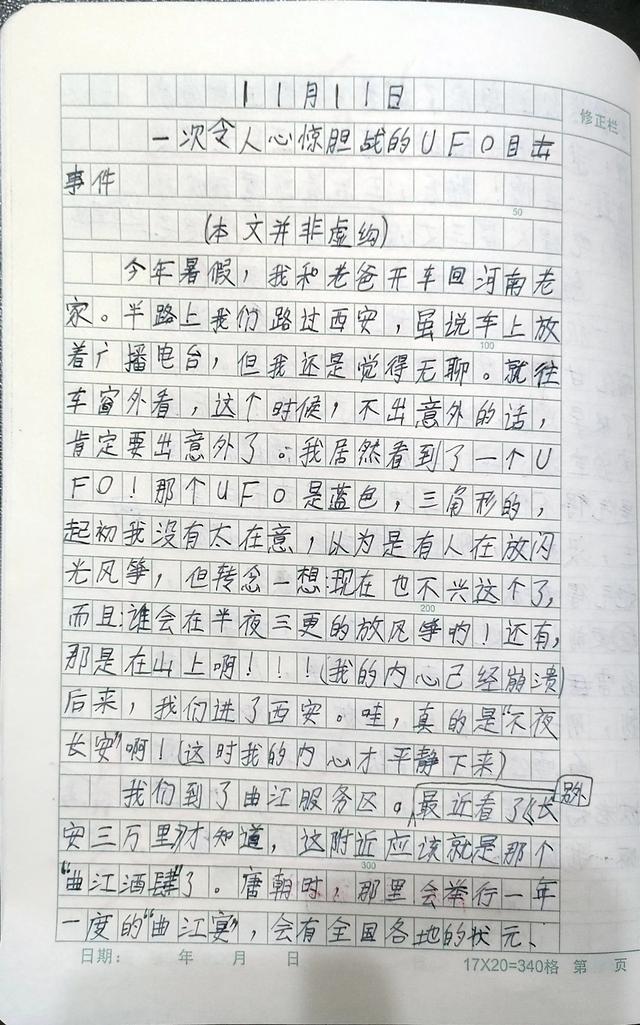 11月11日
修正栏
一次令人心惊胆战的UFO目击
事件
50
(本文并非虚构)
今年暑假，我和老爸开车回河南老
家。半路上我们路过西安，虽说车上放
100
着广播电台，但我还是觉得无聊。就往
车窗外看，这个时候，不出意外的话，
肯定要出意外了。我居然看到了一个U
FO！那个UFO是蓝色，三角形的，
起初我没有太在意，以为是有人在放闪
光风筝，但转念一想:现在也不兴这个了，
200
而且:谁会在半夜三更的放风筝哟！还有，
那是在山上啊！！！(我的内心已经崩溃)
后来，我们进了西安。哇，真的是“不夜
长安”啊！(这时我的内心才平静下来)
我们到了曲江服务区。最近看了《长
另外
安三万里》才知道，这附近应该就是那个
300
“曲江酒肆”了。唐朝时，那里会举行一年
一度的“曲江宴”，会有全国各地的状元、
日期： 年 月 日
17X20=340格 第 页